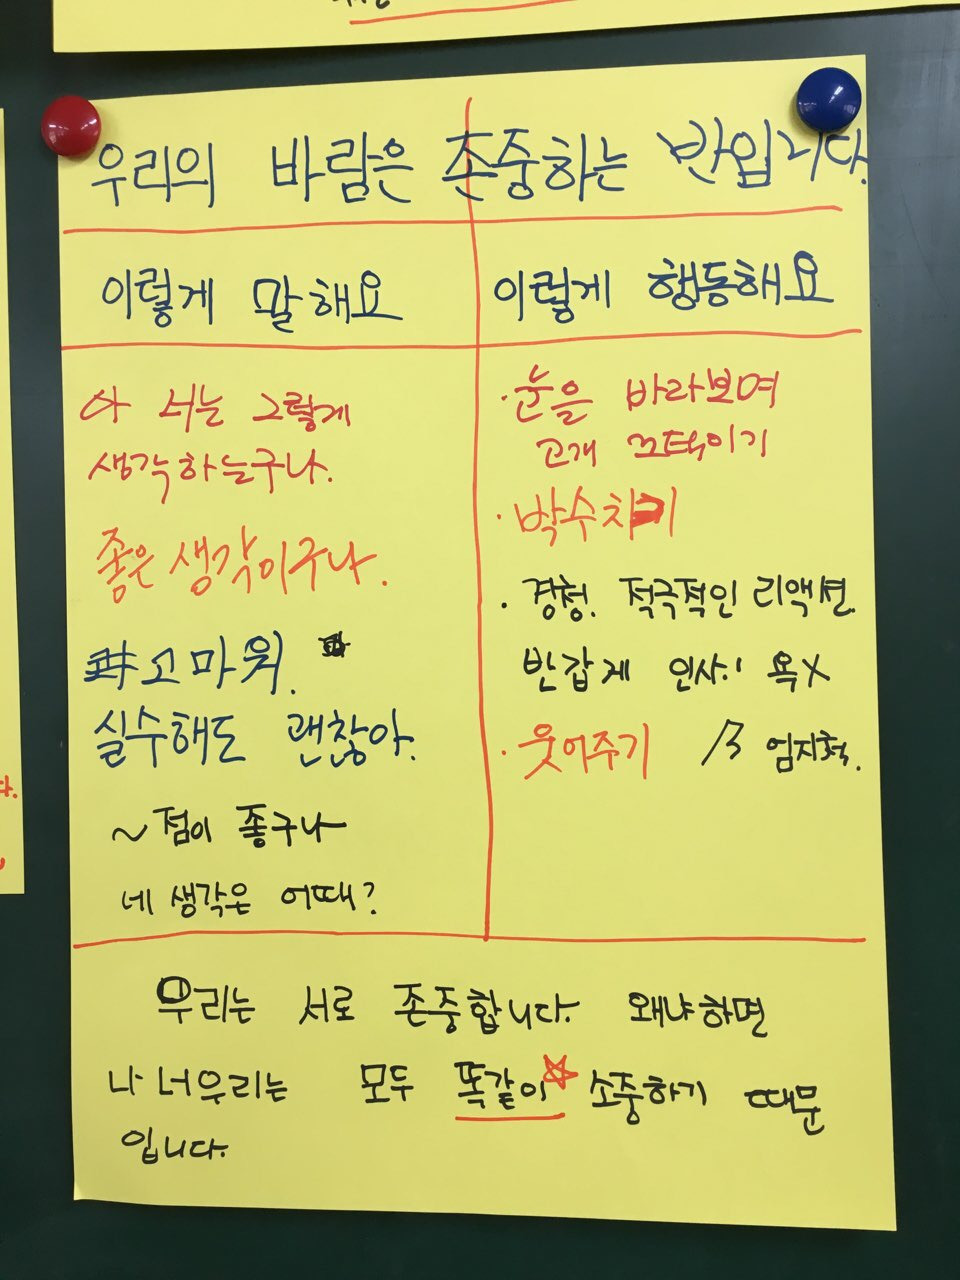 우리의 바람은 존중하는 반입니다.
이렇게 말해요
아 너는 그렇게
생각하는구나.
좋은 생각이구나.
고마워.
실수해도 괜찮아.
~점이 좋구나
네 생각은 어때?
이렇게 행동해요
·눈을 바라보며
고개 끄덕이기
·박수치기
·경청. 적극적인 리액션.
반갑게 인사! 욕X
·웃어주기 엄지척.
우리는 서로 존중합니다. 왜냐하면
나 너우리는 모두 똑같이☆ 소중하기 때문
입니다.